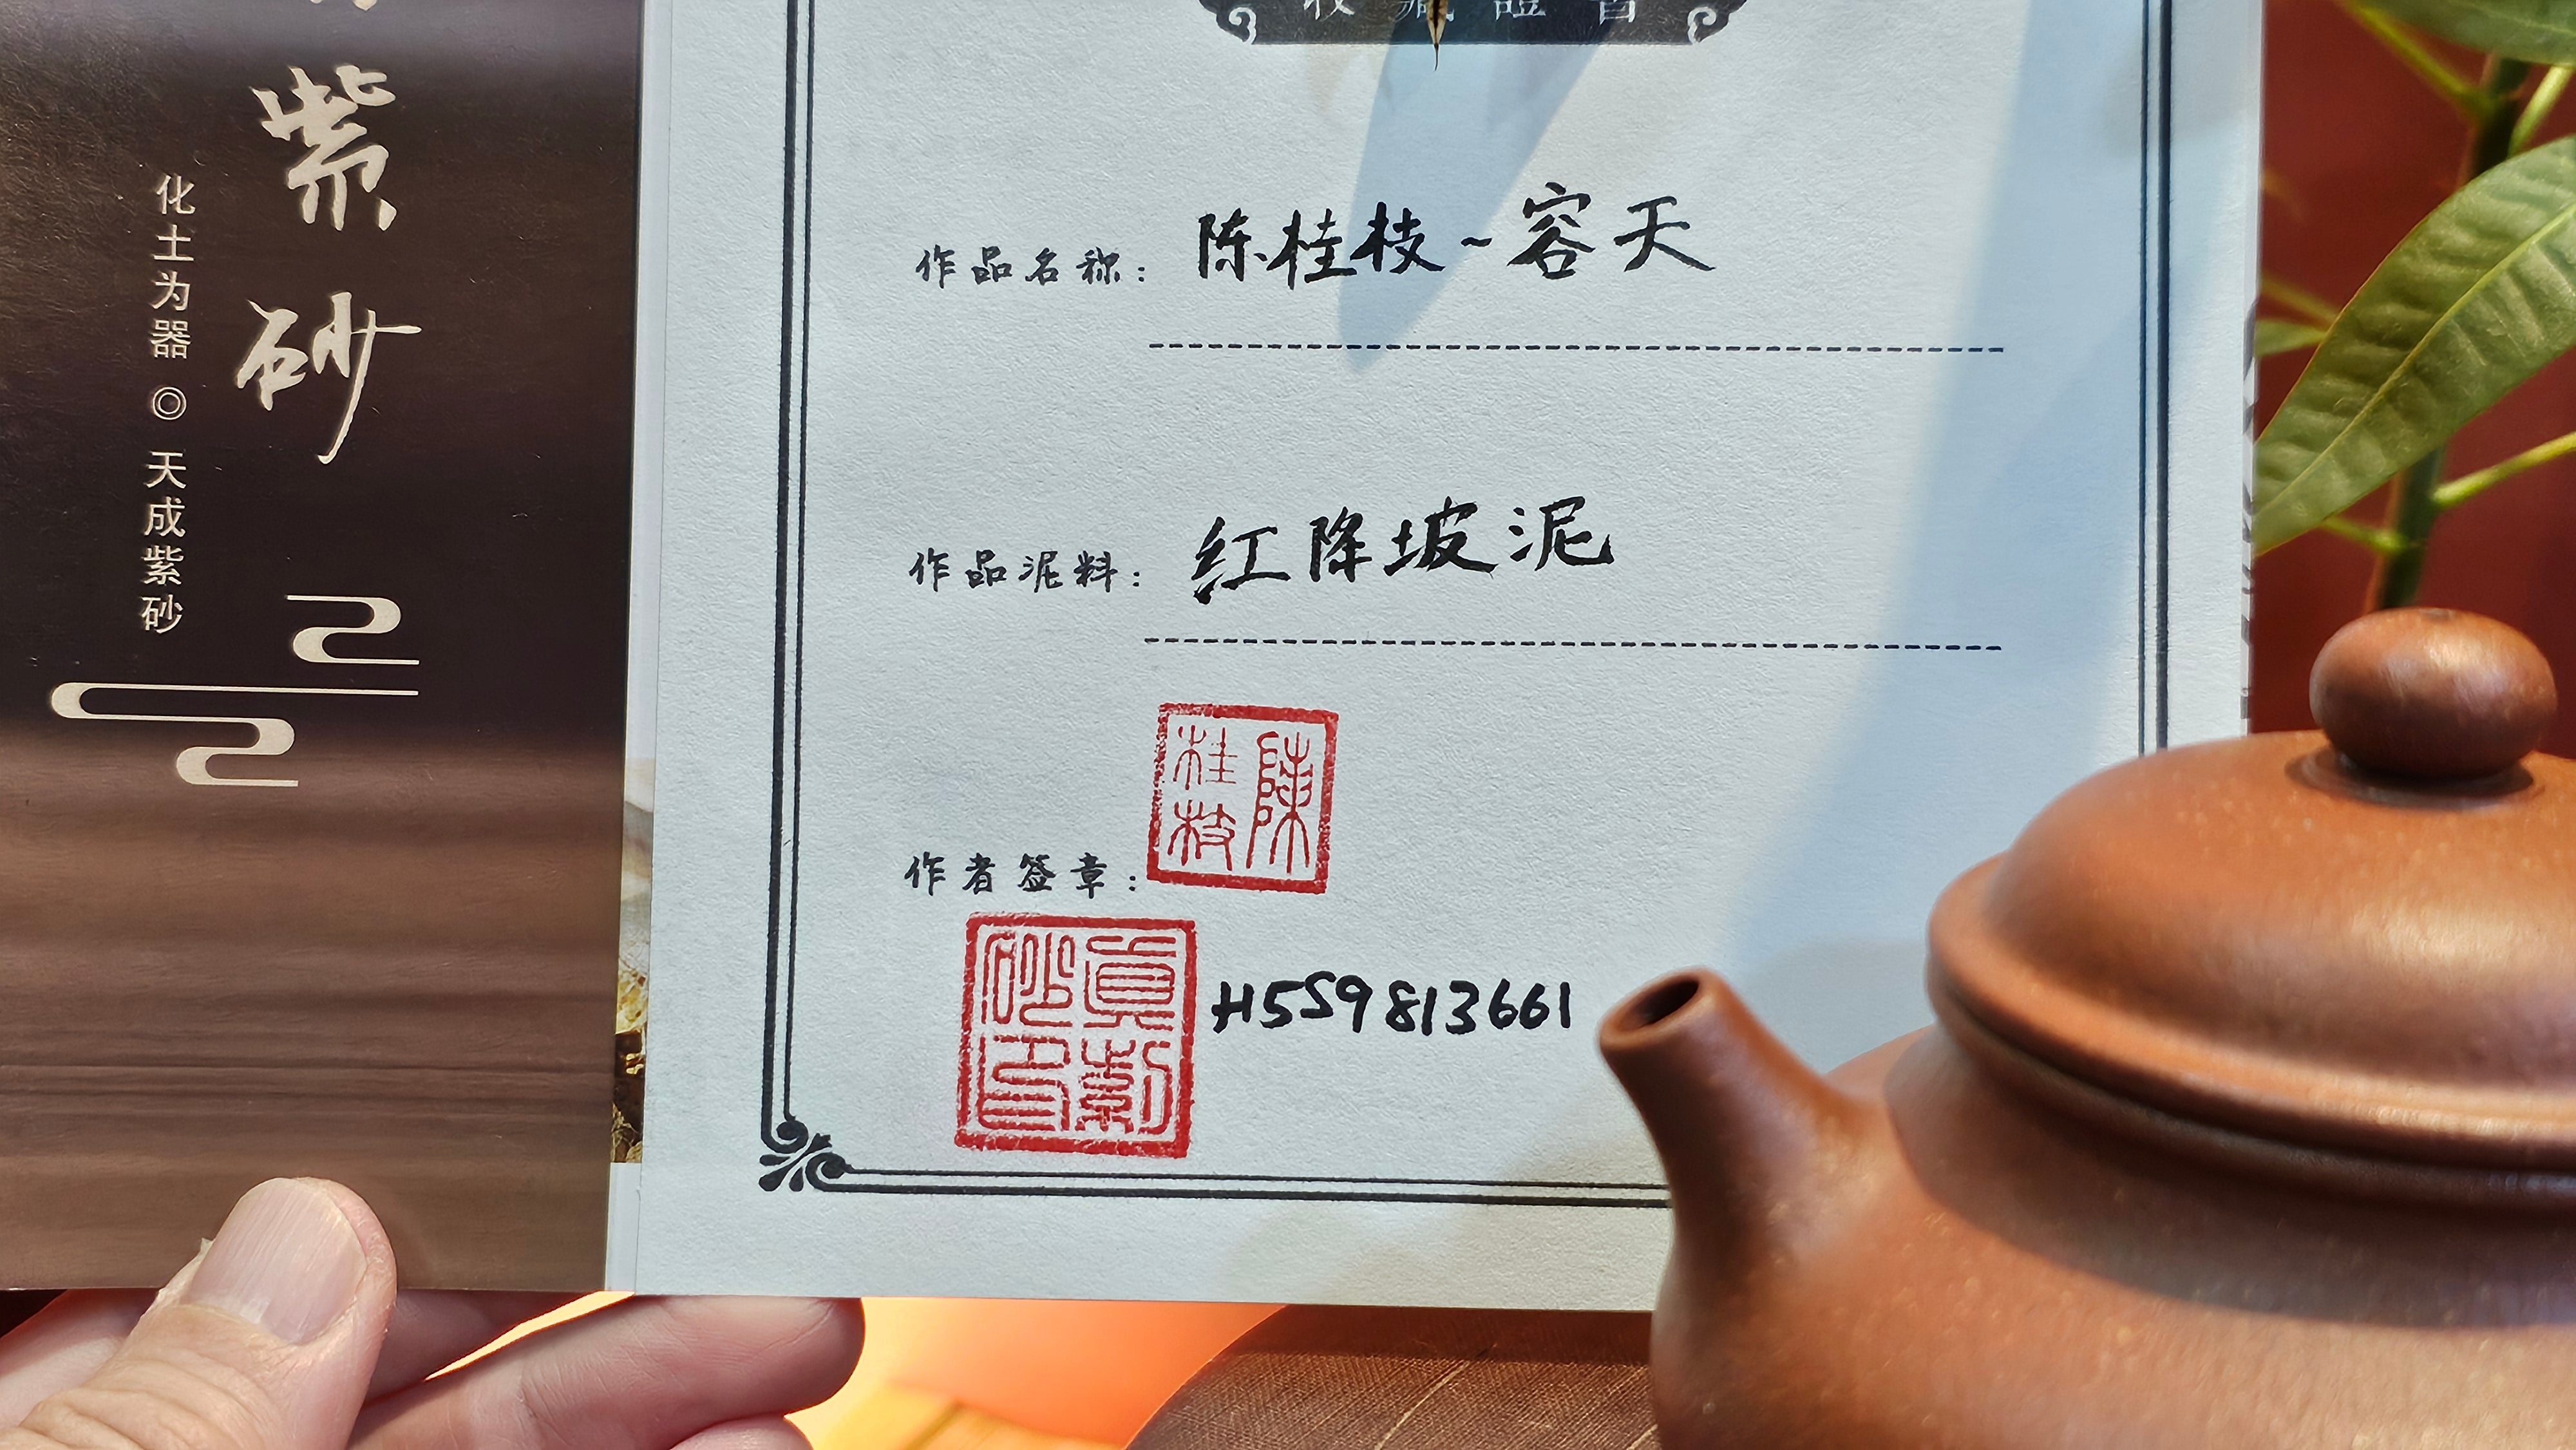 紫砂
化土为器◎天成紫砂
收藏證書
作品名称：陈桂枝~容天
作品泥料：红降坡泥
作者签章：
陳桂枝
H5S9813661